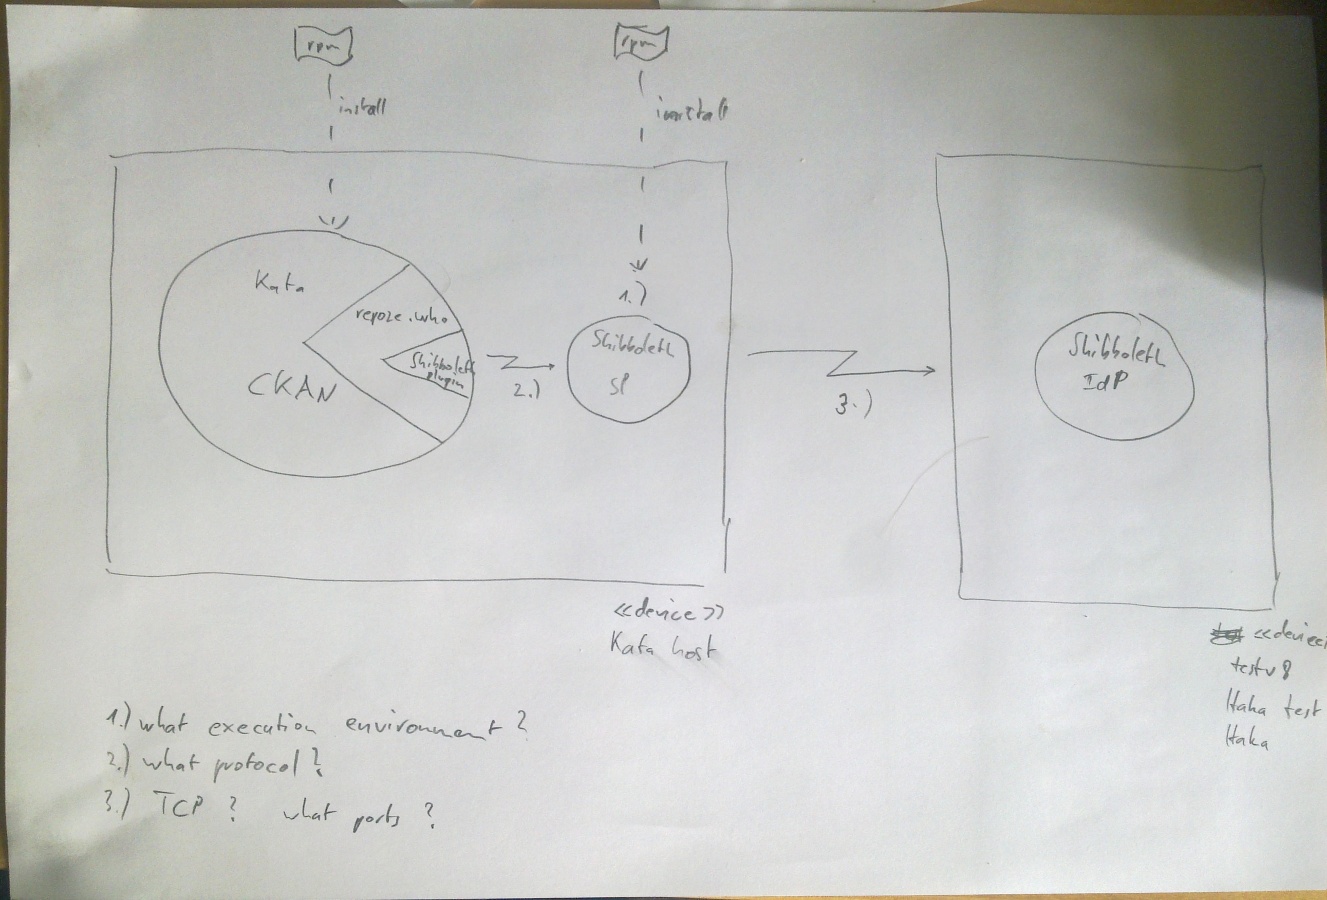 rpm
rpm
install
install
Kata
repoze.who
Shibboleth
plugin
CKAN
2.)
1.)
Shibboleth
SP
3.)
Shibboleth
IdP
<<device>>
Kata host
<<device
testv8
Haka test
Haka
1.) what execution environment?
2.) what protocol?
3.) TCP ? what ports ?